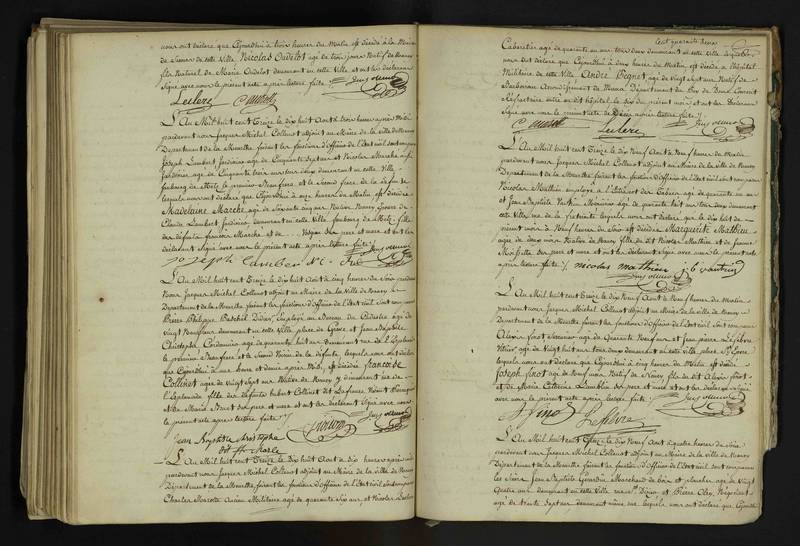 nous ont déclaré que Cejourdhui à trois heures du Matin est décédé à la Maison
de Secours de cette Ville Nicolas Oudelot agé de trois jours Natif de Nancy
fils Naturel de Marie Oudelot demeurant en cette ville et ont les déclarans
Signé avec nous le présent acte après lecture faite
Leclerc
L'An Mil huit cent Treize le dix huit Aout à trois heures après Midi
pardevant nous Jacques Michel Collenot adjoint au Maire de la ville de Nancy
Département de la Meurthe faisant les fonctions d'officier de l'Etat civil sont comparus
Joseph Lambert Jardinier agé de Cinquante Sept ans et Nicolas Marche
Jardinier agé de Cinquante trois ans tous deux demeurant en cette Ville
faubourg de Metz le premier Beau frere et le Second frere de la défunte
lesquels nous ont déclaré que Cejourdhui à onze heures du Matin est décédée
Madelaine Marche agée de Soixante cinq ans Native Nancy
Claude Lambert Jardinier demeurant en cette Ville faubourg de Metz fille
des défunts francois Marche et de
déclarans Signé avec nous le présent acte après lecture faite
joseph Lambert
L'An Mil huit cent Treize le dix huit Aout à cinq heures du Soir pardevant
Nous Jacques Michel Collenot adjoint au Maire de la Ville de Nancy
Département de la Meurthe faisant les fonctions d'officier de l'Etat civil sont comparus
Pierre Philippe Didier Employé au Bureau du Cadastre agé de
vingt Neuf ans demeurant en cette ville place de Grève et Jean Baptiste
Christophe Cordonnier agé de quarante huit ans demeurant rue de l'Esplanade
le premier Beau frere et le Second Voisin de la défunte, lesquels nous ont déclaré
que Cejourdhui à une heure et demie après Midi est décédée francoise
Collinet agée de vingt Sept ans Native de Nancy y demeurant rue de
l'Esplanade fille des défunts hubert Collinet dit
et de Maria Binet Ses pere et mere et ont les déclarans Signé avec nous
le présent acte après lecture faite
jean Baptiste christophe
L'An Mil huit cent Treize le dix huit Aout à dix heures après midi
pardevant nous Jacques Michel Collenot adjoint au Maire de la ville de Nancy
Département de la Meurthe faisant les fonctions d'officier de l'Etat civil sont comparus
Charles Marcotte Ancien Militaire agé de quarante Six ans, et Nicolas Leclerc
Cent quarante
Cabaretier agé de quarante un ans tous deux demeurant en cette Ville lesquels
nous ont déclaré que Cejourdhui à deux heures du Matin est décédé à l'hôpital
Militaire de cette Ville André Begnet agé de vingt Sept ans Natif de
Département du Puy de Dome Conscrit
Réfractaire entré au dit hôpital le dix du présent mois et ont les déclarans
Signé avec nous le present acte de Décès après lecture faite
Leclerc
L'An Mil huit cent Treize le dix Neuf Aout à Neuf heures du Matin
pardevant nous Jacques Michel Collenot adjoint au Maire de la ville de Nancy
Département de la Meurthe faisant les fonctions d'officier de l'Etat civil sont comparus
Nicolas Mathieu employé à l'Entrepôt des Tabacs agé de quarante un ans
et Jean Baptiste Vautrin Menuisier agé de quarante huit ans tous deux demeurant en
cette Ville rue de la faïencerie lesquels nous ont déclaré que le dix huit du
présent mois à Neuf heures du Soir est décédée Marguerite Mathieu
agée de deux mois Native de Nancy fille du dit Nicolas Mathieu et de Jeanne
Ses pere et mere et ont les déclarans Signé avec nous le présent acte
après lecture faite
nicolas mathieu j b vautrin
L'An Mil huit cent Treize le dix Neuf Aout à Neuf heures du Matin
pardevant nous Jacques Michel Collenot adjoint au Maire de la ville de Nancy
Département de la Meurthe faisant les fonctions d'officier de l'Etat civil sont comparus
Alexis finot agé de quarante Neuf ans et Jean pierre Lefebvre
agé de Vingt huit ans tous deux demeurant en cette ville place St Epvre
lesquels nous ont déclaré que Cejourdhui à cinq heures du Matin est décédé
Joseph finot agé de Neuf mois Natif de Nancy fils du dit Alexis finot
et de Marie Catherine Lamblin Ses pere et mere et ont les déclarans Signé
avec nous le présent acte après lecture faite
finot Lefebvre
L'An Mil huit cent Treize le dix Neuf Aout à quatre heures du Soir
pardevant nous Jacques Michel Collenot adjoint au Maire de la ville de Nancy
Département de la Meurthe faisant les fonctions d'officier de l'Etat civil sont comparus
les Sieurs Jean Baptiste Gérardin Marchand de bois et plancher agé de Vingt
Quatre ans demeurant en cette Ville rue St Dizier et Pierre Négociant
agé de trente Sept ans demeurant même rue lesquels nous ont déclaré que Cejourdhui